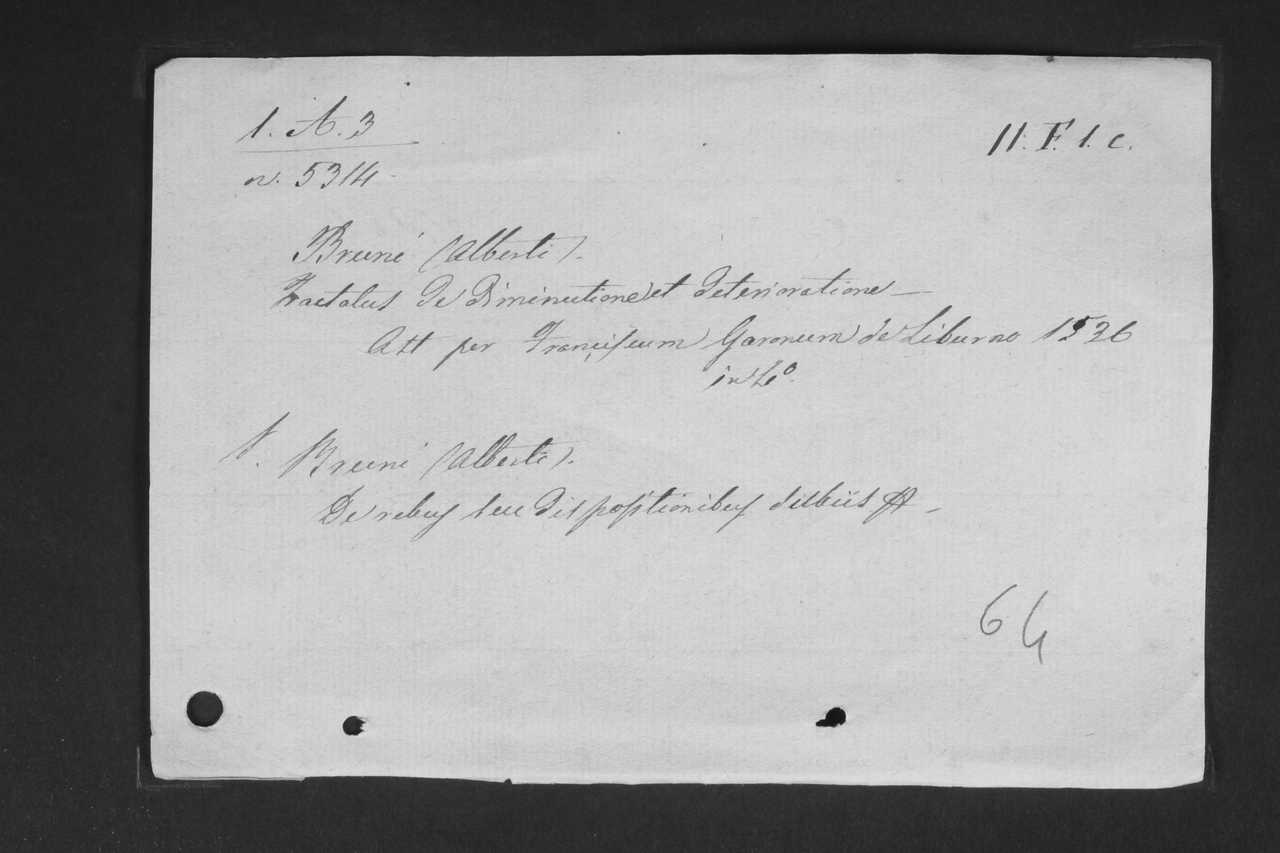 1. A. 3
11. F. 1. c.
n. 5314
Bruni (Alberti).
Tractatus de diminutione et deterioratione —
Att per Francifcum Garonum de Liburno 1536
in 4º.
V. Bruni (Alberti).
De rebuf seu difpofitionibuf dubiis
64